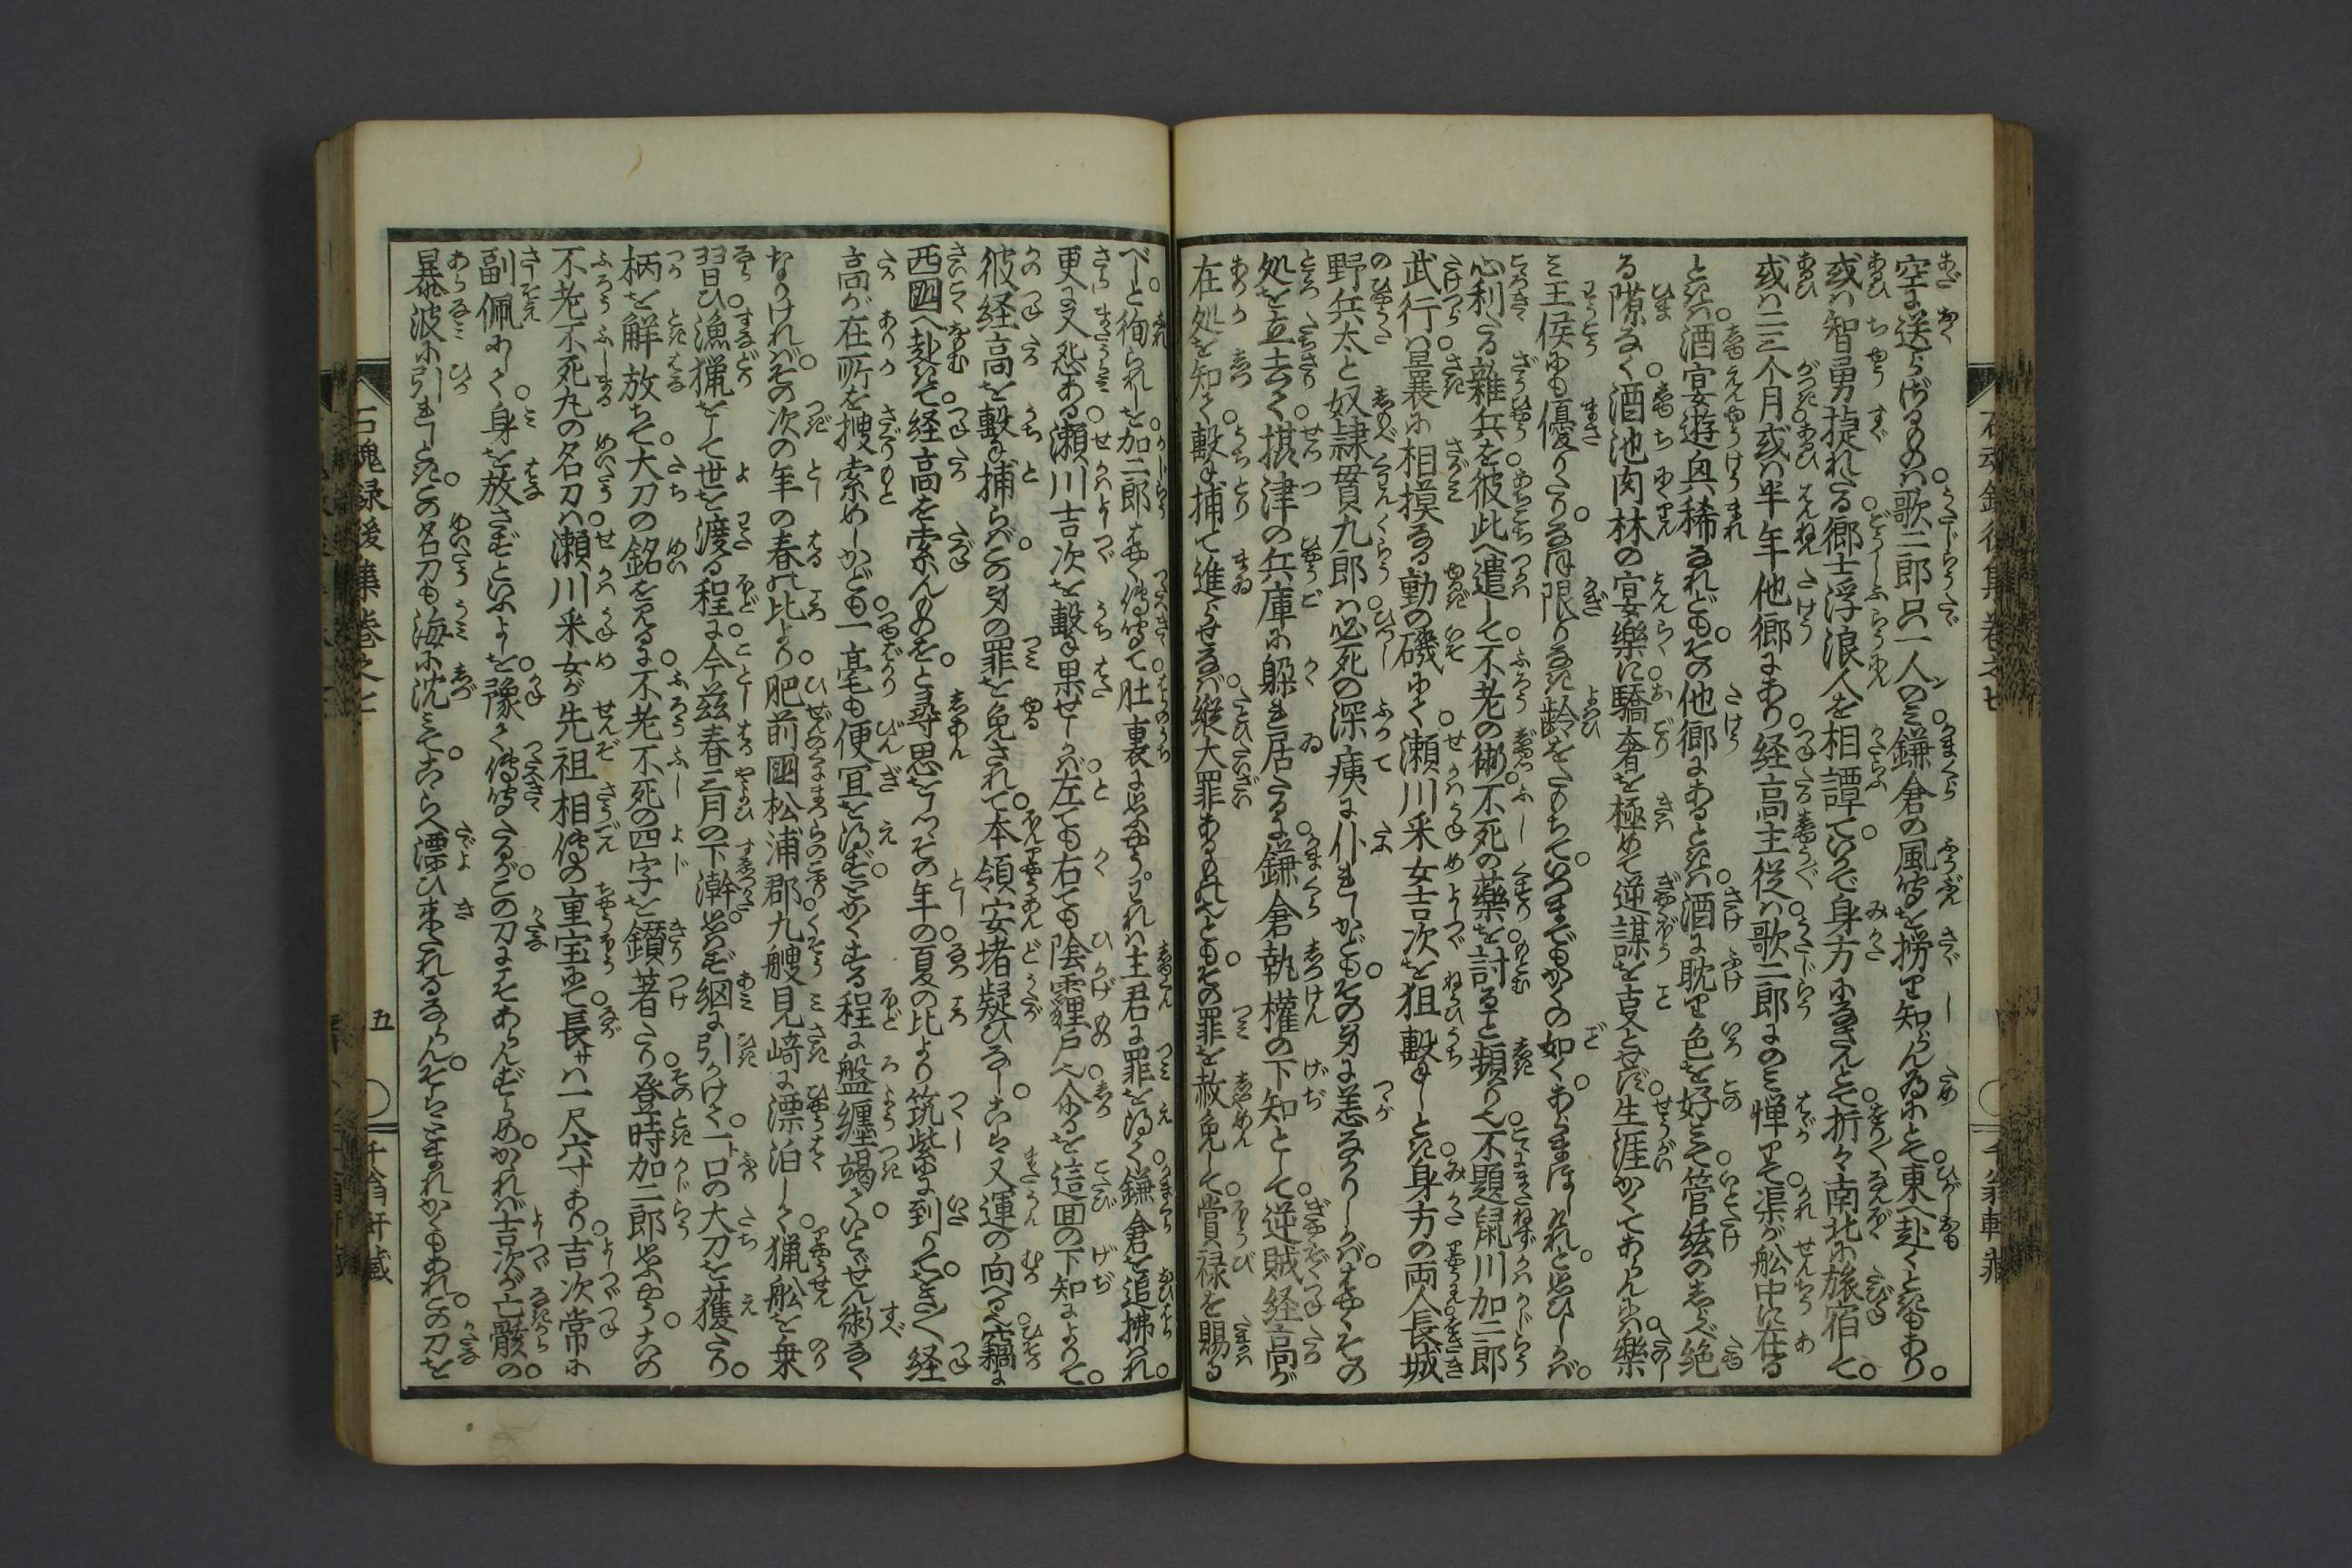 空に送らざるものは歌二郎只一人のミ鎌倉の風声を撈り知らん為にとて東へ赴くときもあり
或は智勇捷れたる郷士浮浪人を相譚ていかで身方になさんとて折々南北に旅宿して
或は二三个月或は半年他郷にあり経高主従は歌二郎にのミ憚りて渠が舩中に在る
ときは酒宴遊興稀なれどもその他郷にあるときは酒に耽り色を好ミて管絃のしらべ絶
る隙なく酒池肉林の宴樂に驕奢を極めて逆謀を克とせず生涯かくてあらんにハ樂
ミ王侯にも優りたりなほ限りなき齢をたもちていつまでもかくの如くあらまほしけれと思ひしかば
心利たる雜兵を彼此へ遣して不老の術不死の藥を討ること頻り也不題鼠川加二郎
武行は曩に相摸なる動の磯にて瀬川采女吉次を狙撃にしとき身方の両人長城
野兵太と奴隷貫九郎は必死の深痍に仆れしかどもその身は恙なかりしかばはやくその
処を立去て摂津の兵庫に躱れ居たるに鎌倉執權の下知として逆賊経高が
在処を知て撃捕て進らせなば縦大罪あるものたりともその罪を赦免して賞禄を賜る
べしと徇られしを加二郎はやく傳聞て肚裏に思ふやうわれは主君に罪を得て鎌倉を追拂はれ
更に又怨ある瀬川吉次を撃果せしかば左ても右ても陰霾戸也今この這囬の下知によりて
彼経高を撃捕らばこの身の罪を免されて本領安堵疑ひなしこは又運の向へる也竊に
西國へ赴きて経高を索んものをと尋思をしつゝその年の夏の比より筑紫に到りてをさ〳〵経
高が在所を捜索めしかども一毫も便宜を得ずとかくする程に盤纏竭ていとゞせん術なく
なりければその次の年の春の比より肥前國松浦郡九艘見﨑に漂泊して猟舩を乗
習ひ漁猟をして世を渡る程に今茲春三月の下澣思はず網に引かけて一口の大刀を獲たり
柄を解放ちて大刀の銘を見るに不老不死の四字を鐫著たり登時加二郎思ふやうこの
不老不死丸の名刀は瀬川采女が先祖相傳の重宝にて長サは一尺六寸あり吉次常に
副佩にして身を放さずといふよしを豫て傳聞たるがこの刀にこそあらんずらめかれば吉次が亡骸の
暴波に引れしときこの名刀も海に沈ミてこゝらへ漂ひ来たれるならんそらまれかくもあれこの刀を
石魂録後集巻之七
五
千翁軒藏